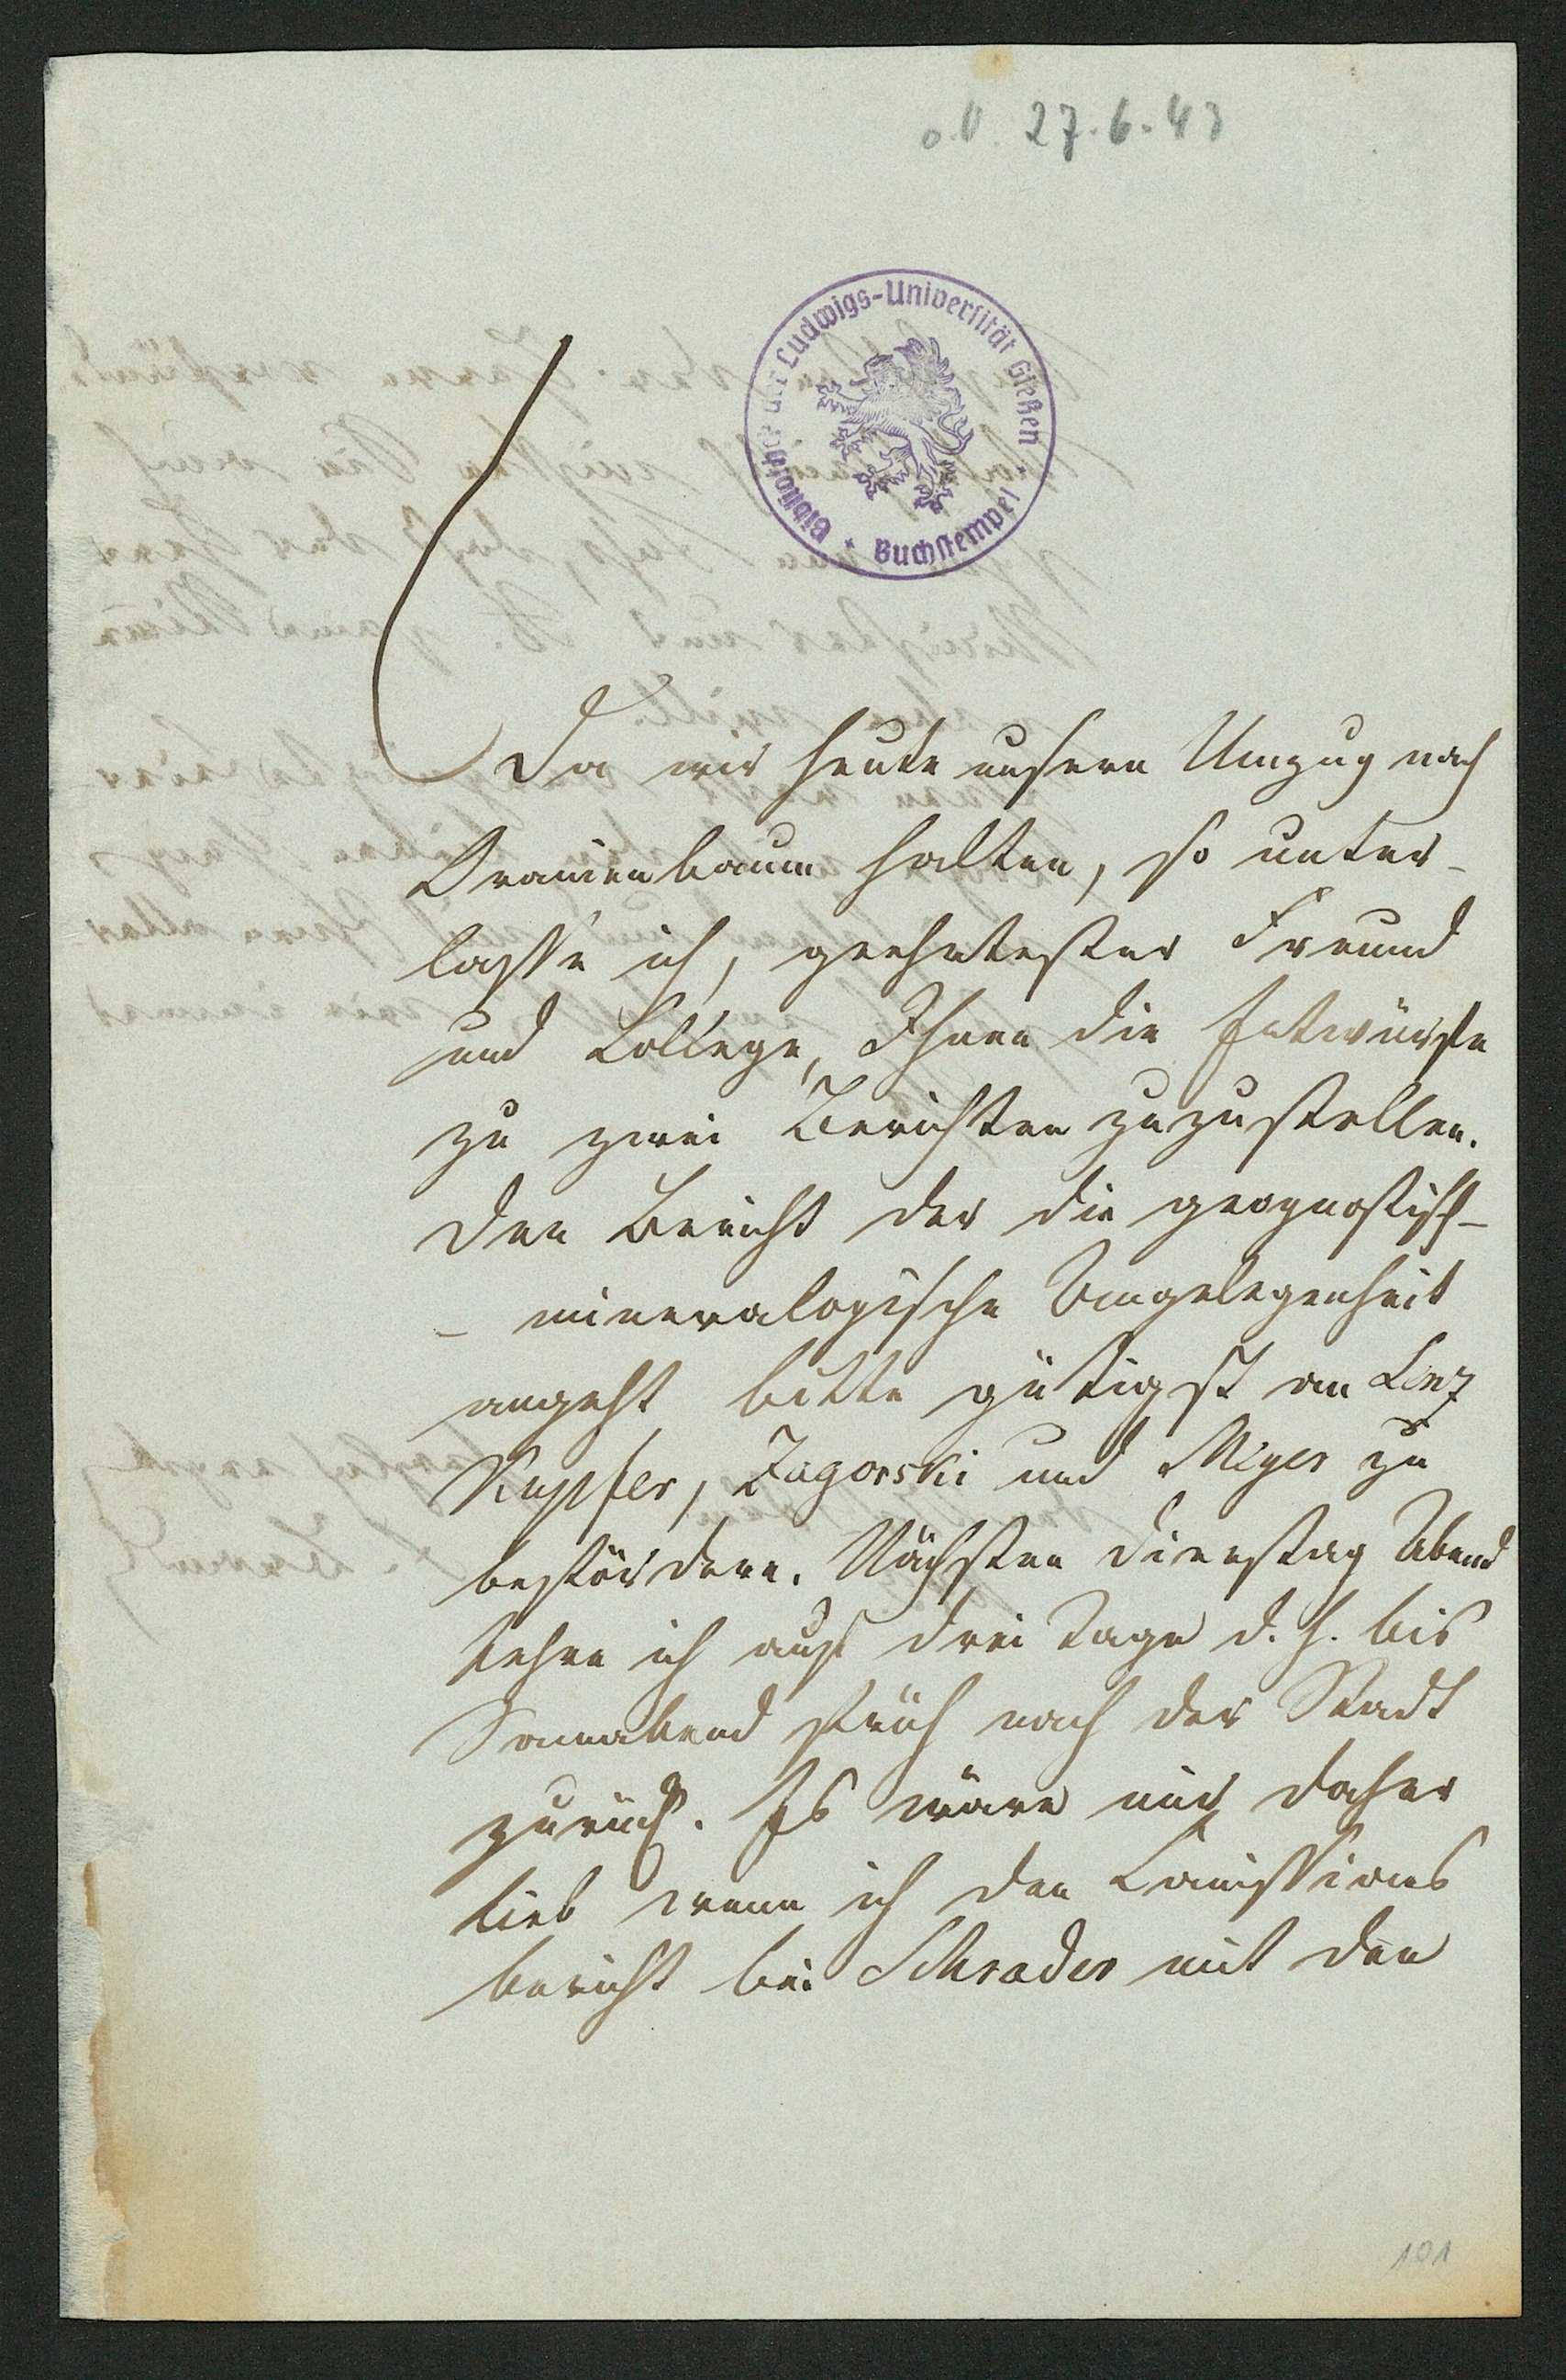 o. O. 27.6.43
Bibliothek der Ludwigs-Universität Gießen
* Buchstempel *
Da wir heute unsern Umzug nach
Oranienbaum halten, so unter-
lasse ich, geehrtester Freund
und College, Ihnen die Entwürfe
zu zwei Berichten zuzustellen.
Den Bericht der die geognostisch-
- mineralogische Angelegenheit
angeht bitte gütigst an Lenz
Kupffer, Zagorski und Meyer zu
befördern. Nächsten Dienstag Abend
kehre ich auf drei Tage d. h. bis
Sonnabend früh nach der Stadt
zurück. Es wäre mir daher
lieb wenn ich den Comissions
bericht bei Schrader mit den
101